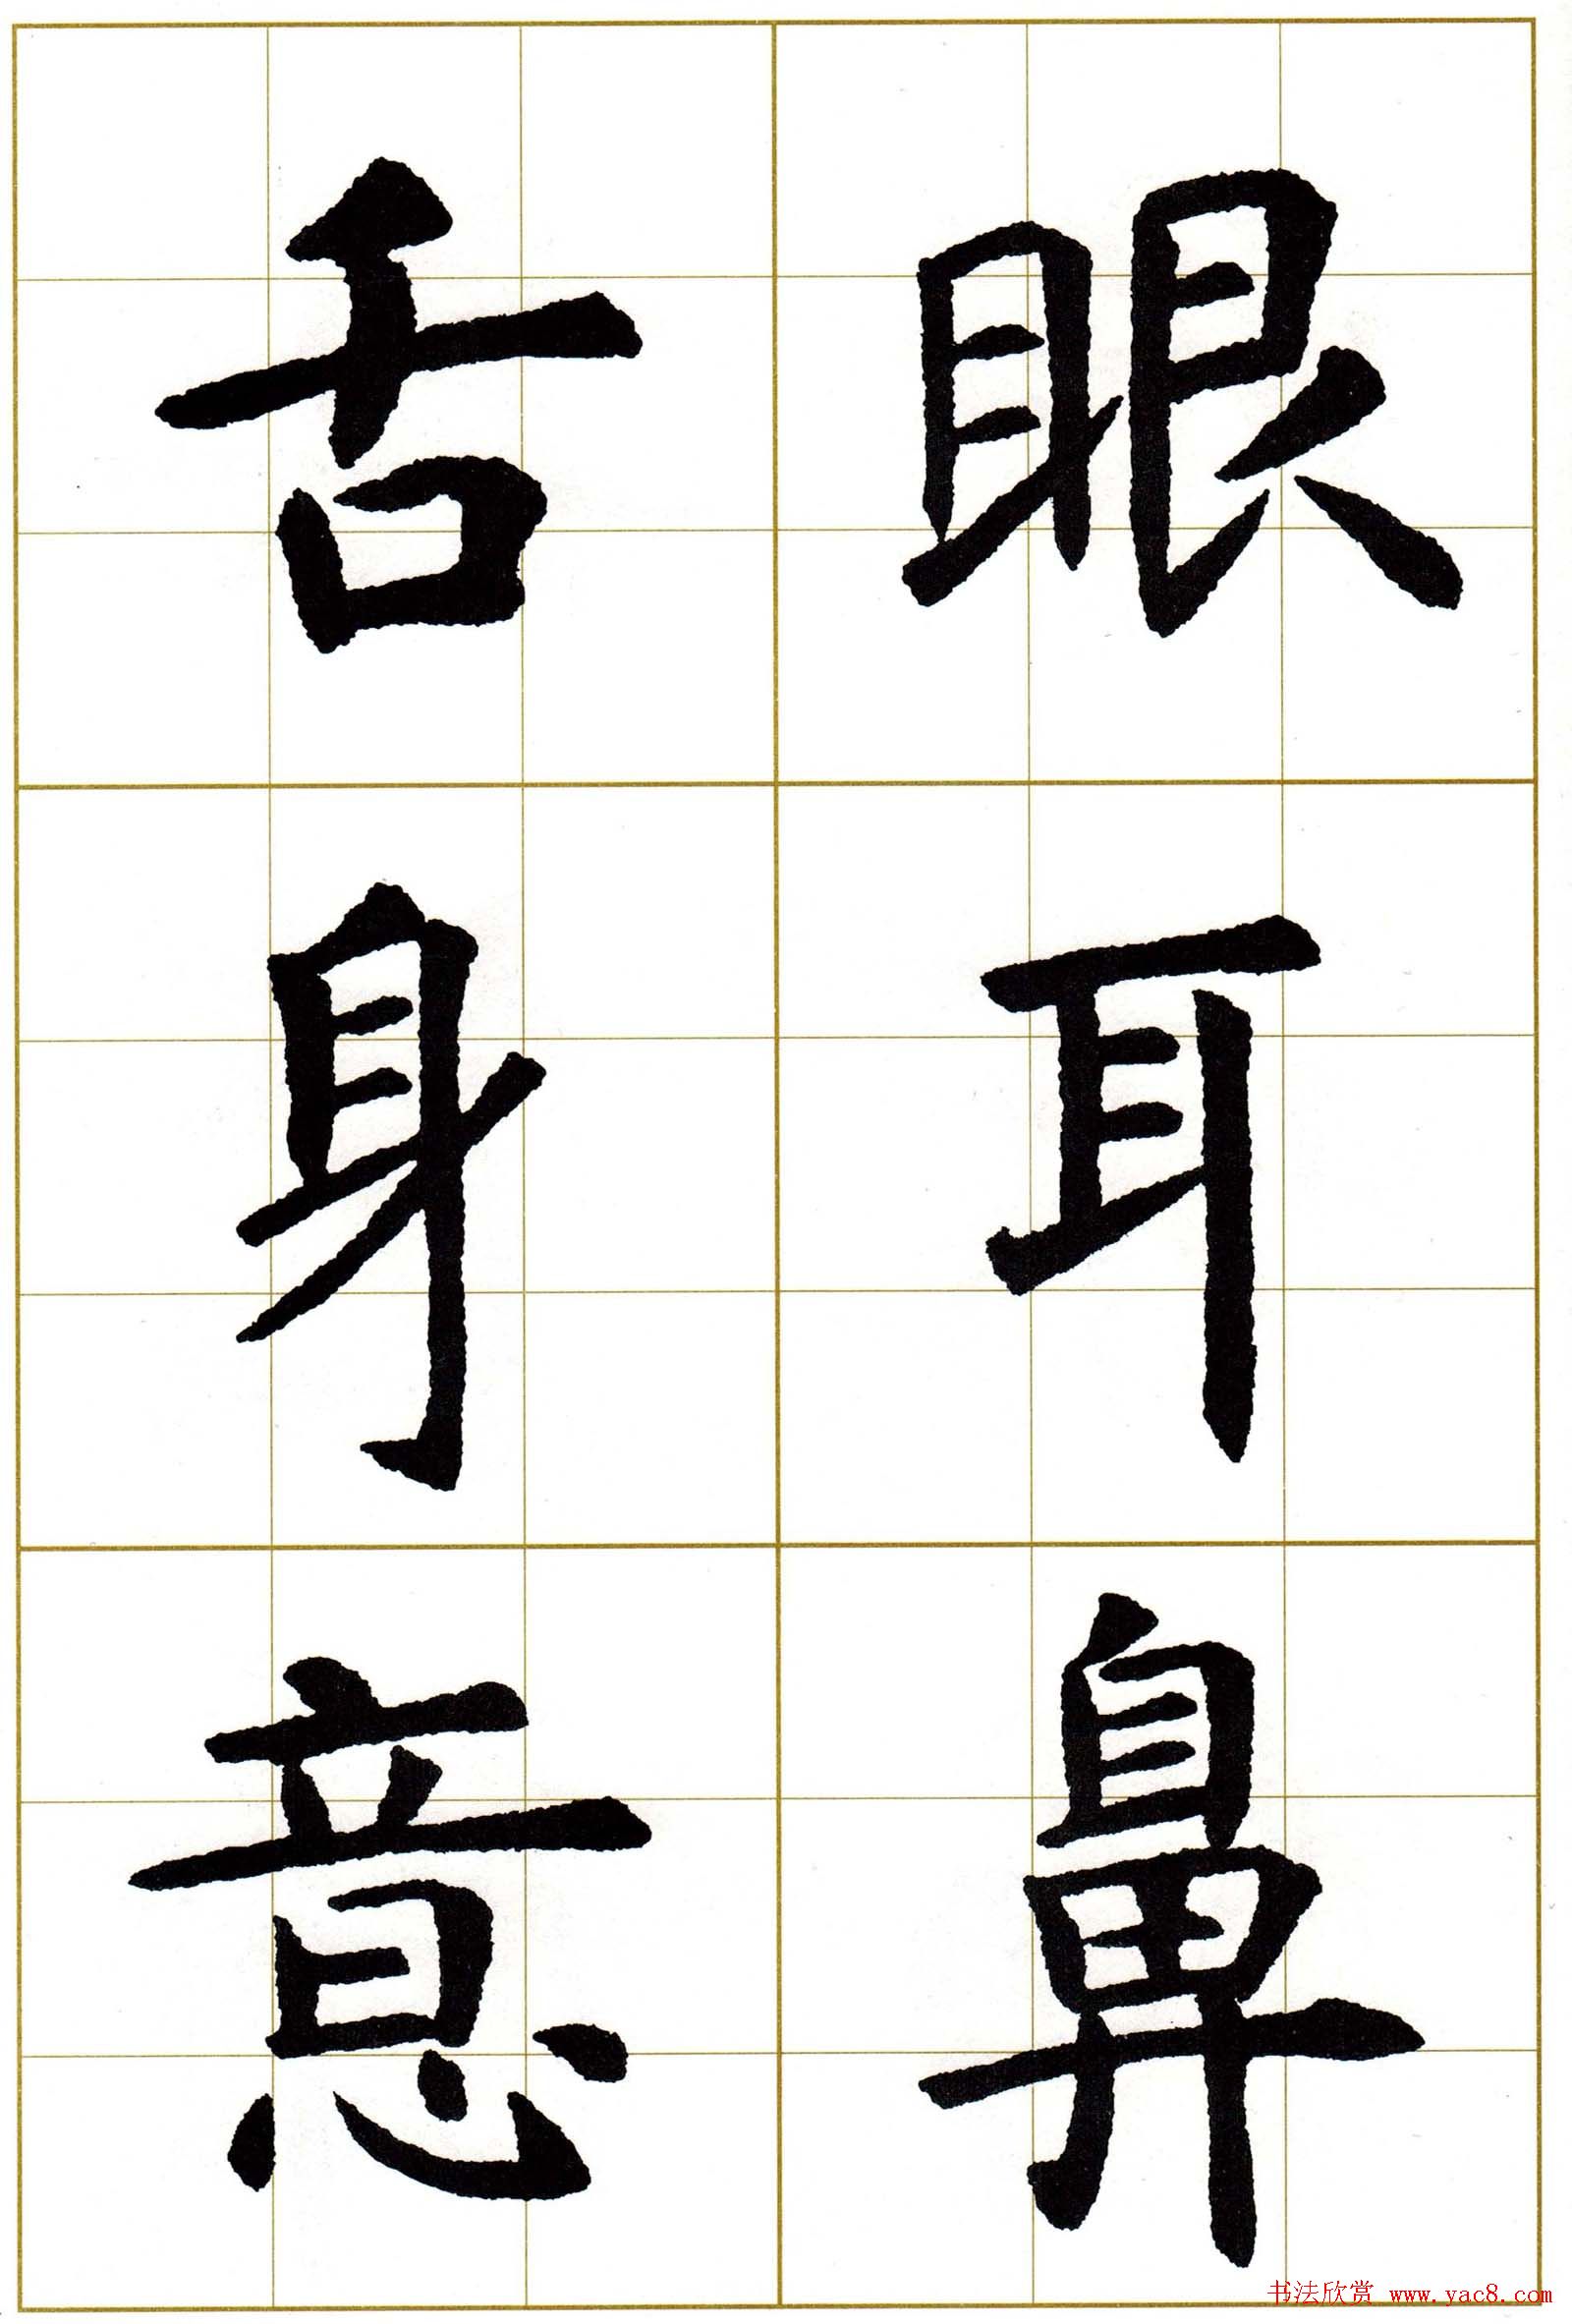 眼耳鼻
舌身意
书法欣赏 www.yac8.com